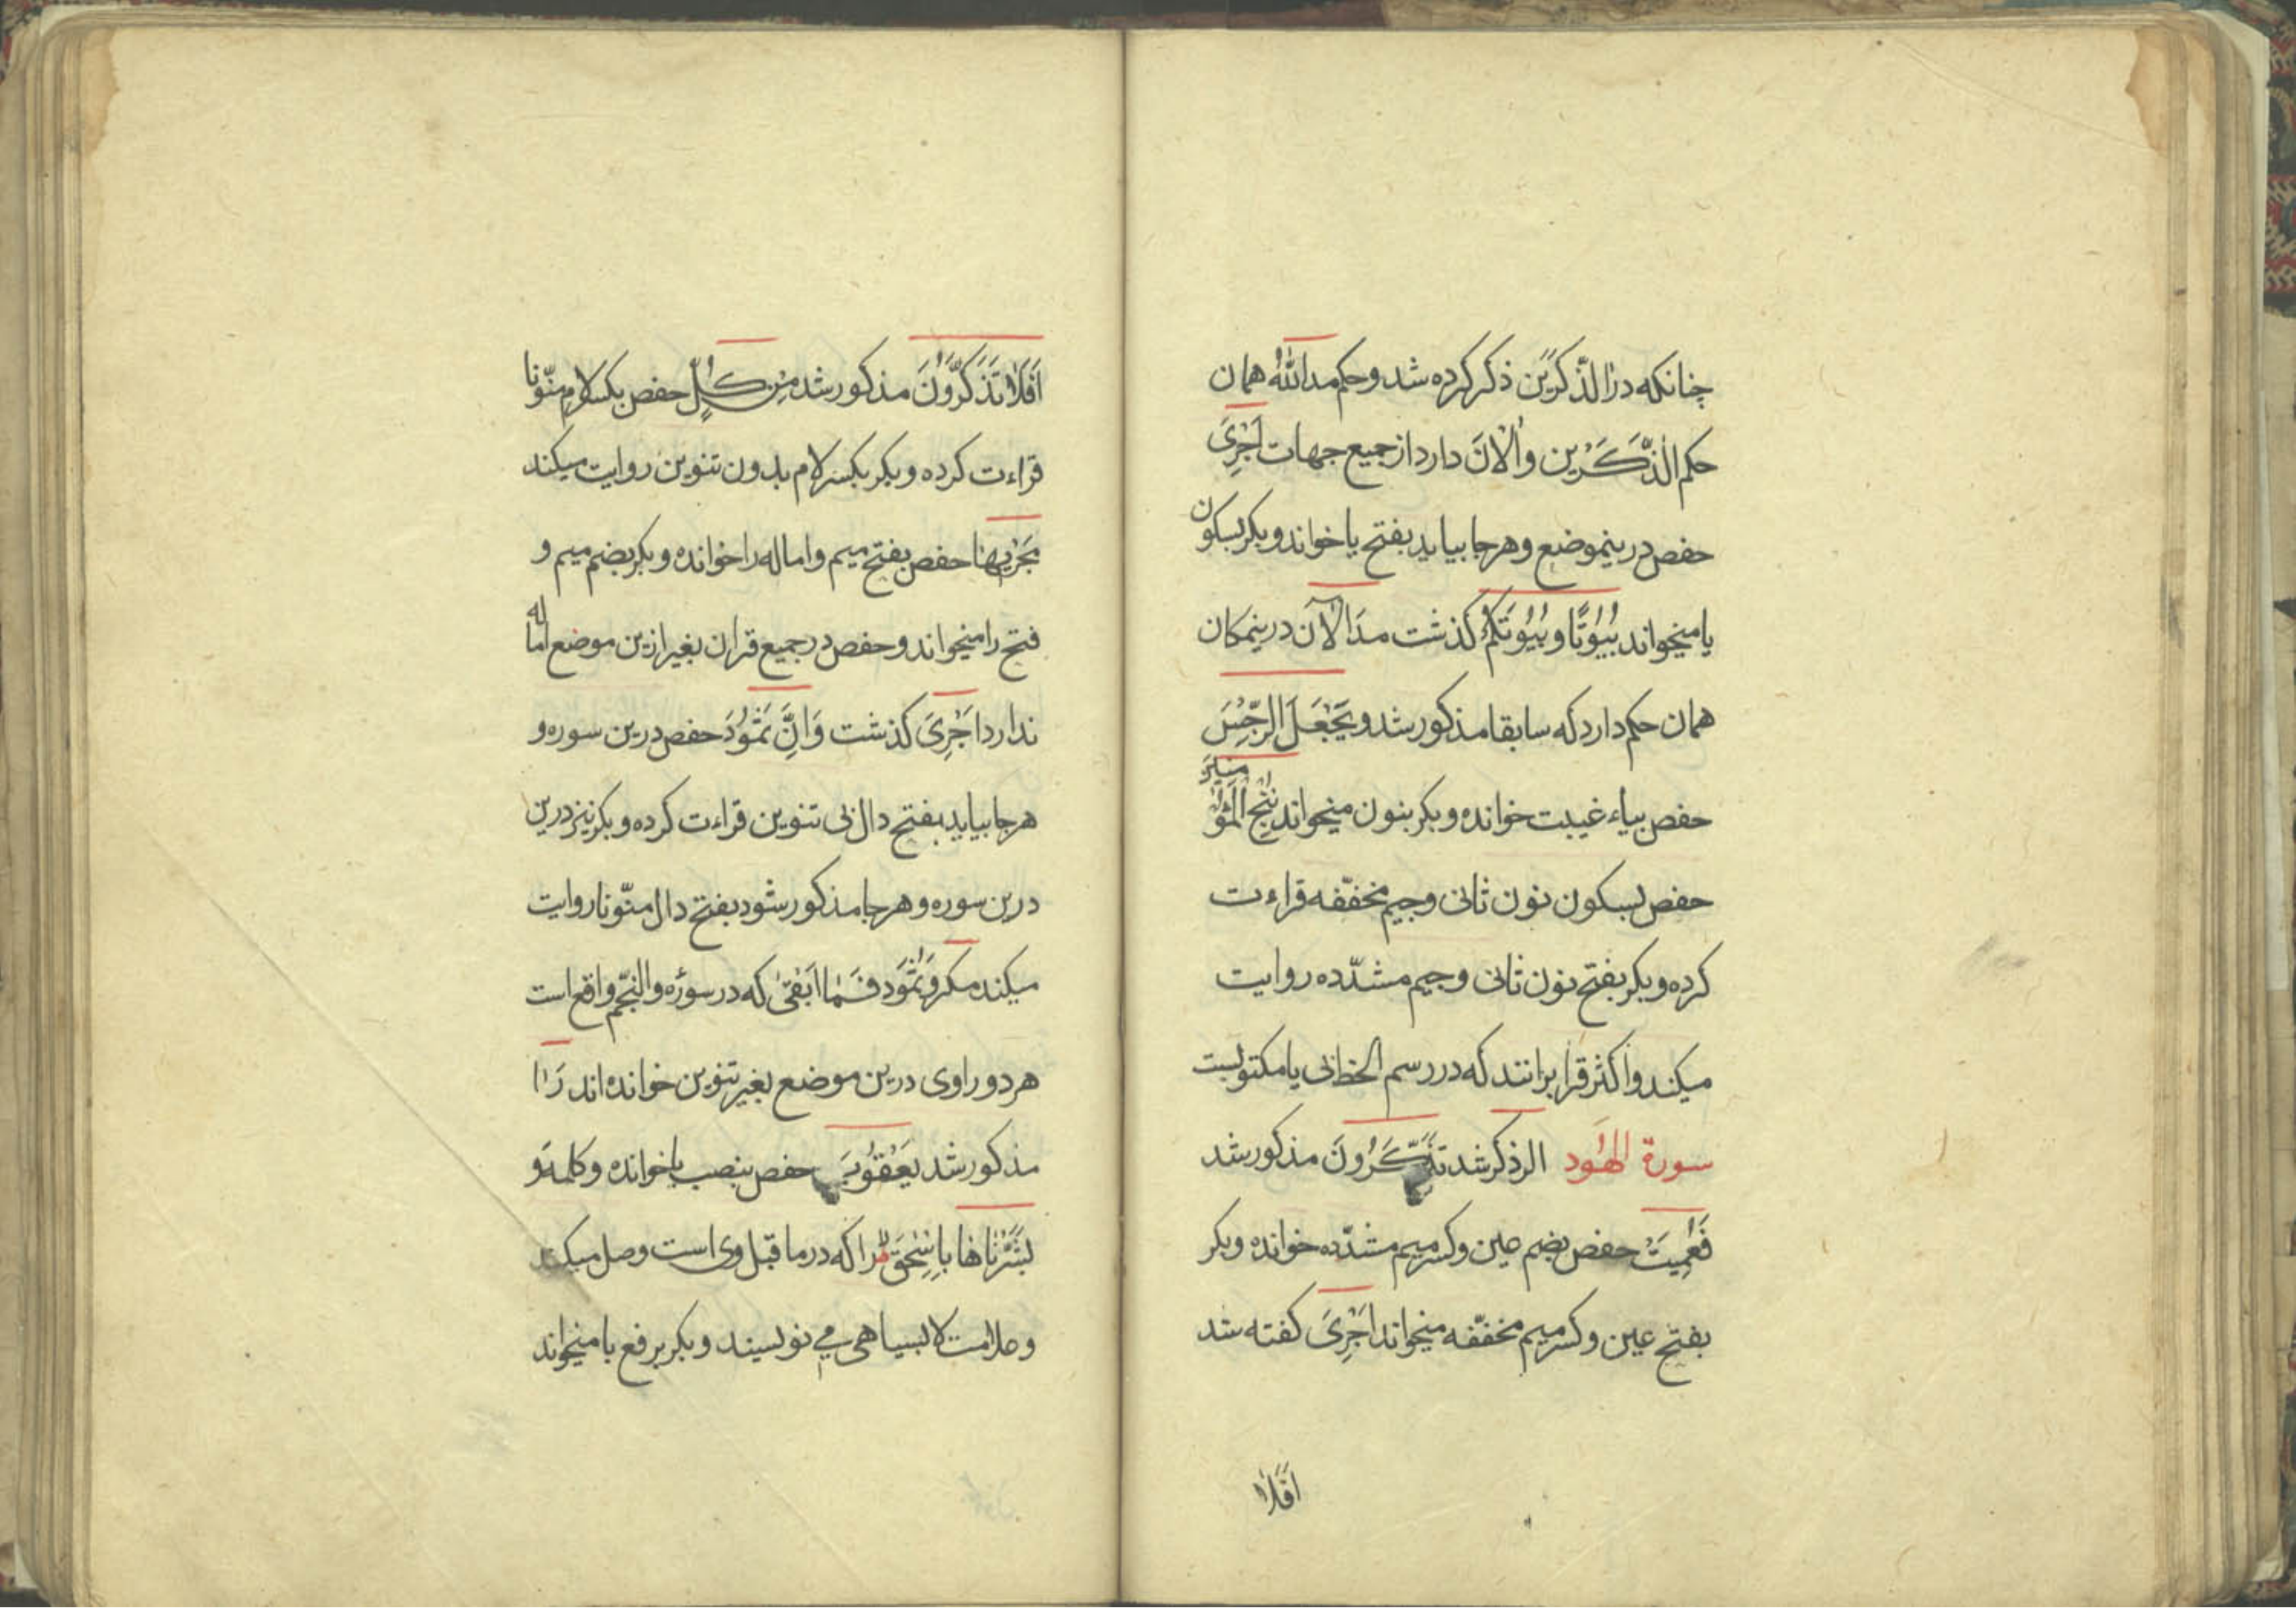 چنانکه در اٰلذّکرین ذکر کرده شد و حکم مد اٰللّٰه همان
حکم اٰلذَّکَرَیْن و اٰلْاٰنَ دارد از جمیع جهات اَجْرِیَ
حفص درینموضع و هرجا بیاید بفتح یا خواند و بکر بسکون
یا میخواند بُیُوْتًا و بُیُوْتَکُمْ کذشت مد اٰلْآن درینمکان
همان حکم دارد که سابقا مذکور شد و یَجْعَلَ الرِّجْسَ
حفص بیاء غیبت خوانده و بکر بنون میخواند نُنْجِ الْمُؤْمِنِیْنَ
حفص بسکون نون ثانی و جیم مخفّفه قراءت
کرده و بکر بفتح نون ثانی و جیم مشدّده روایت
میکند و اکثر قرا برانند که در رسم الخط انی یا مکتوبست
سورة الهُود الر ذکر شد تَذَکَّرُونَ مذکور شد
فَعُمِّیَتْ حفص بضم عین و کسر میم مشدّده خوانده و بکر
بفتح عین و کسر میم مخففّه میخواند اَجْرِیَ کفته شد
اَفَلَاٰ
اَفَلَاٰ تَذَکَّرُوْنَ مذکور شد مِنْ کُلٍّ حفص بکسر لام منّونا
قراءت کرده و بکر بکسر لام بدون تنوین روایت میکند
مَجْرٰیهٰا حفص بفتح میم و اماله را خوانده و بکر بضم میم و
فتح را میخواند و حفص در جمیع قران بغیر ازین موضع اماله
ندارد اَجْرِیَ کذشت وَ اِنَّ ثَمُوْدَ حفص درین سوره و
هرجا بیاید بفتح دال بی تنوین قراءت کرده و بکر نیز درین
درین سوره و هرجا مذکور شود بفتح دال منّونا روایت
میکند مکر وَ ثَمُوَد فَمٰا اَبْقیٰ که در سورۀ والنّجم واقع است
هر دو راوی درین موضع بغیر تنوین خوانده اند رَاٰ
مذکور شد یَعْقُوْبَ حفص بنصب با خوانده و کلمۀ و
بَشَّرْنٰاهٰا بِاِسْحٰقَ را که در ما قبل وی است وصل میکند
و علامت لا بسیاهی می نویسیند و بکر برفع با میخواند